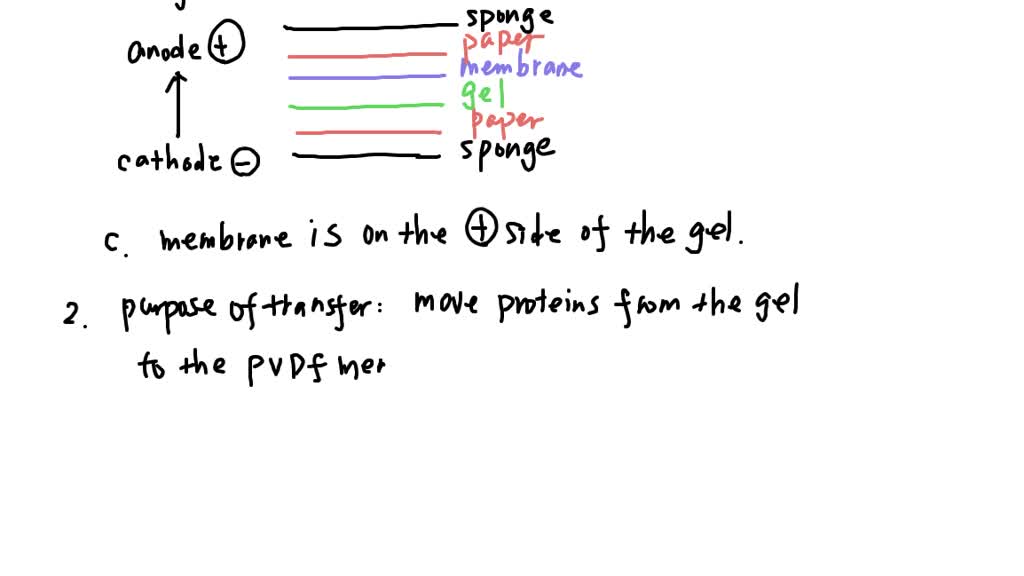 sponge
anode +
paper
membrane
gel
paper
cathode -
sponge
c. membrane is on the + side of the gel.
2. purpose of transfer: move proteins from the gel
to the PVDF mer